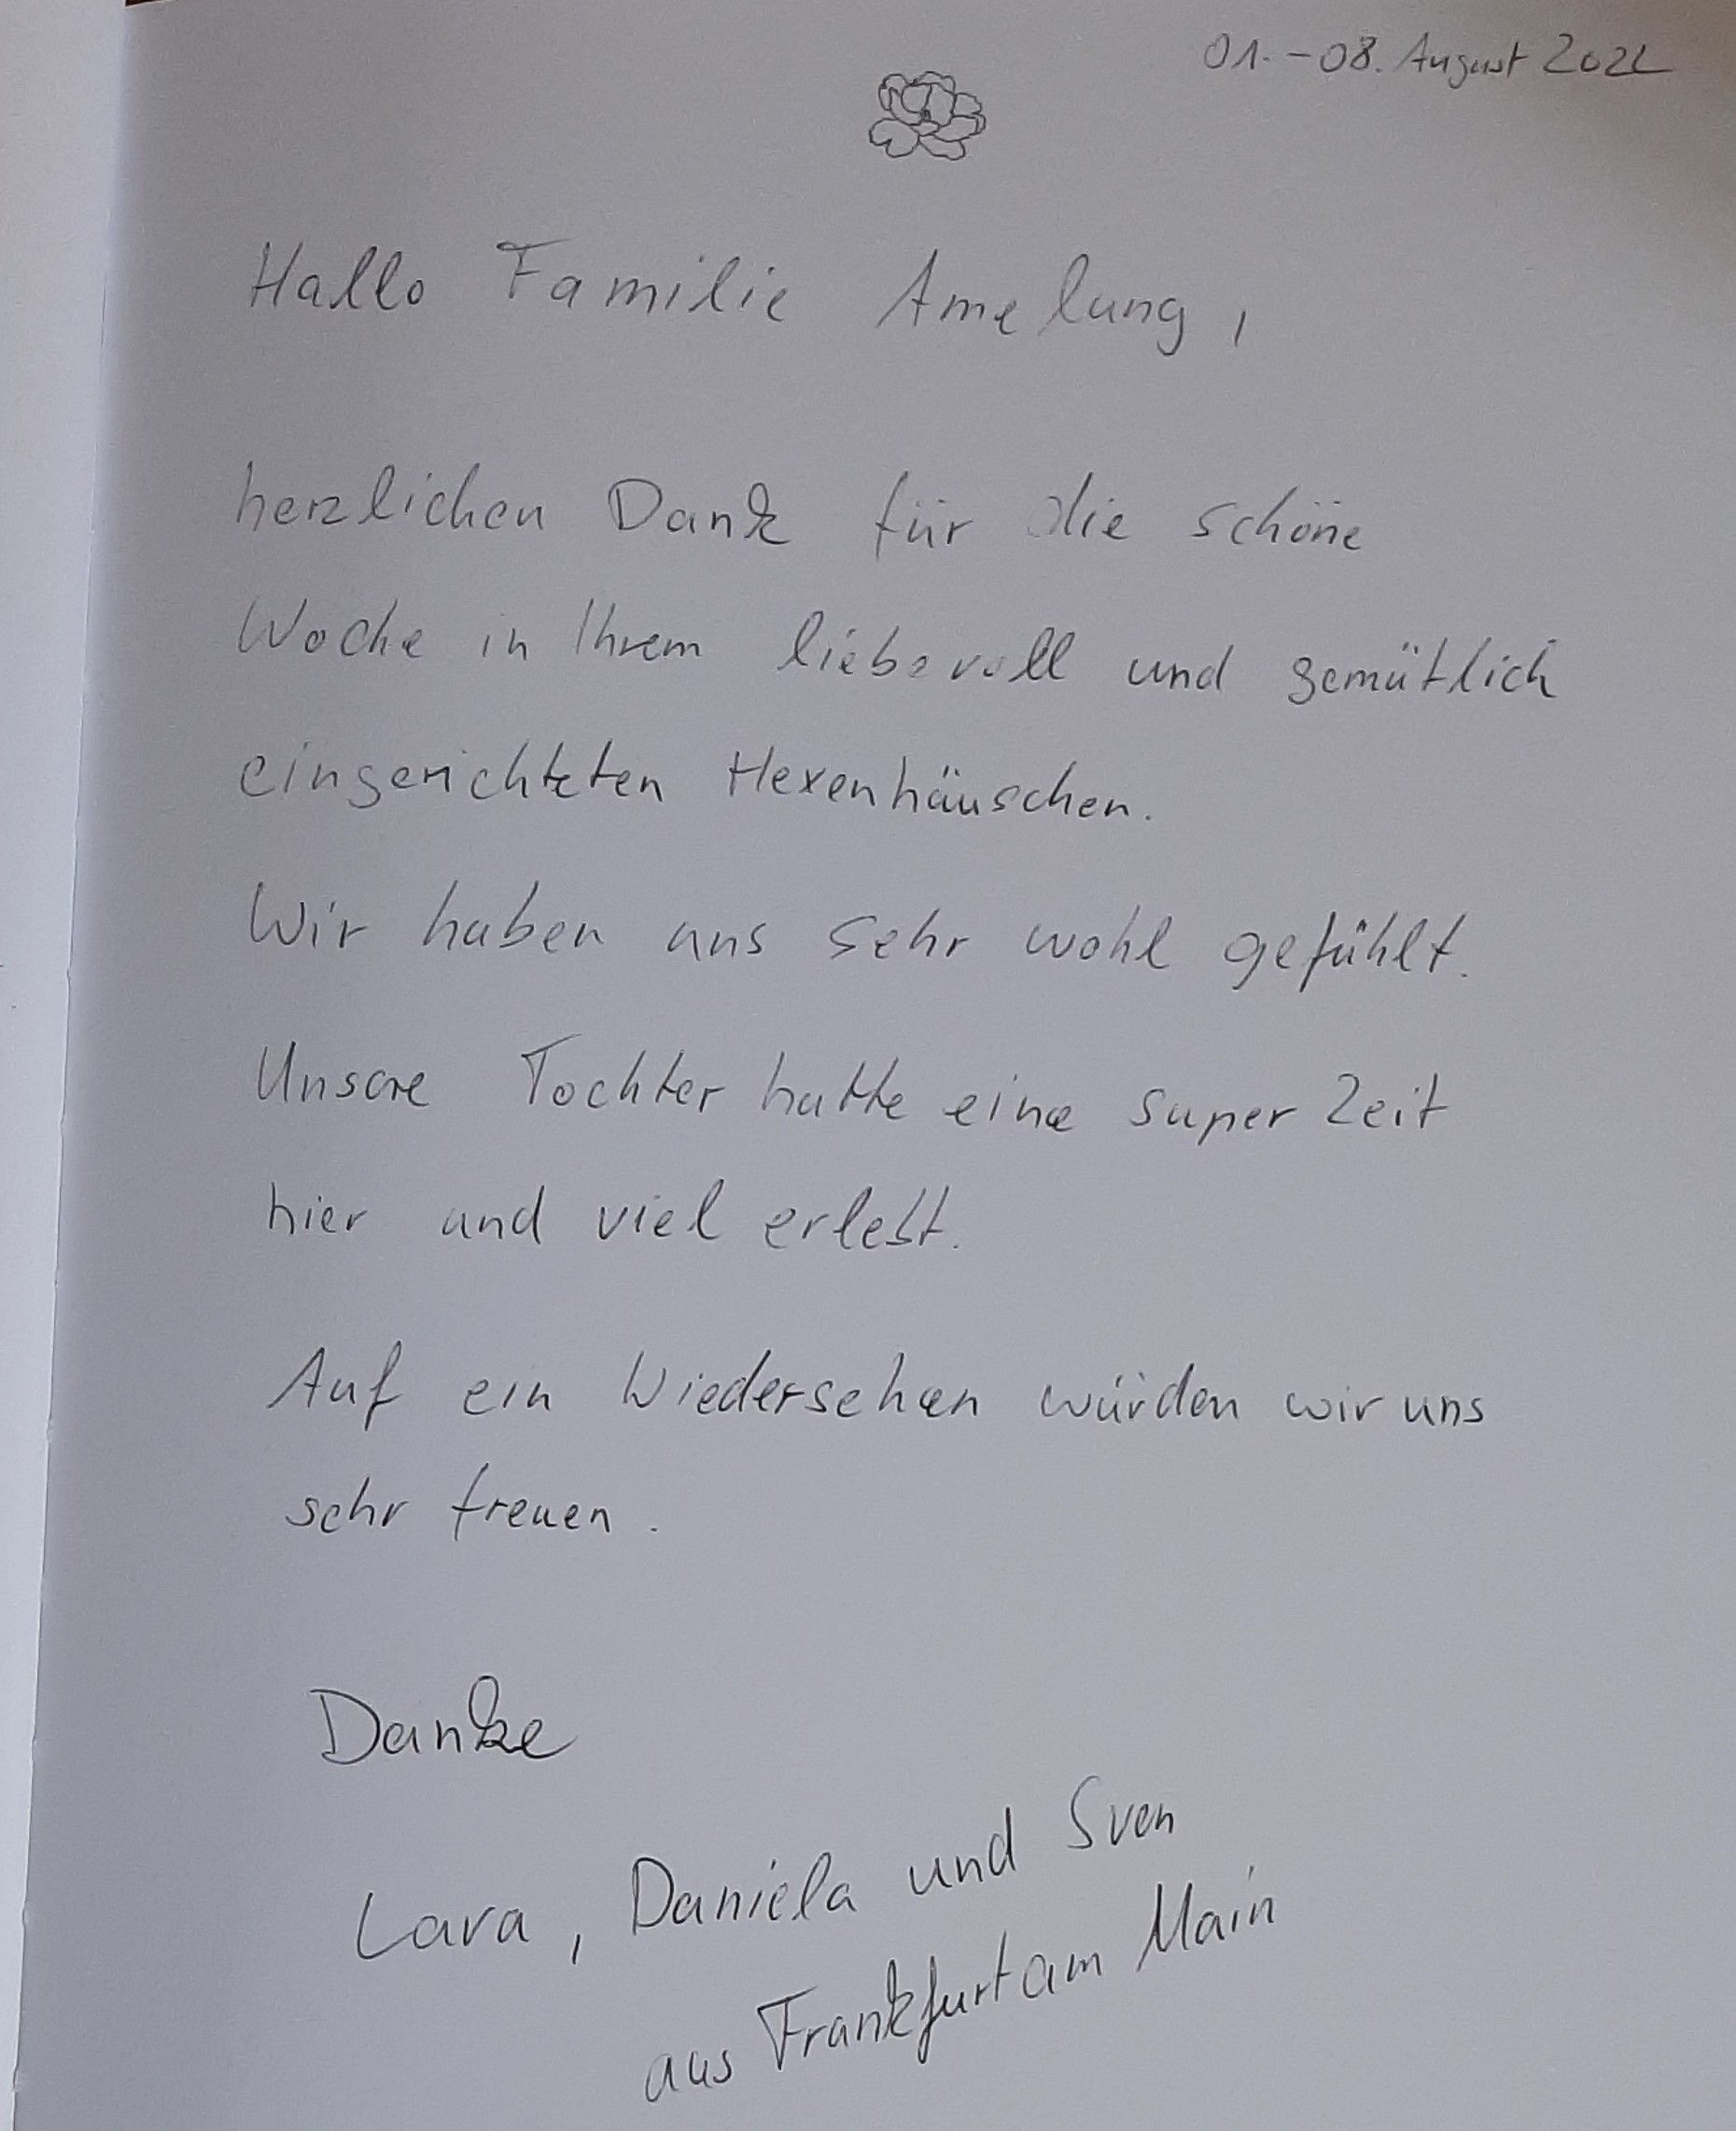 01.-08. August 2022
Hallo Familie Amelung,
herzlichen Dank für die schöne
Woche in Ihrem liebevoll und gemütlich
eingerichteten Hexenhäuschen.
Wir haben uns sehr wohl gefühlt.
Unsere Tochter hatte eine super Zeit
hier und viel erlebt.
Auf ein Wiedersehen würden wir uns
sehr freuen.
Danke
Lara, Daniela und Sven
aus Frankfurt am Main